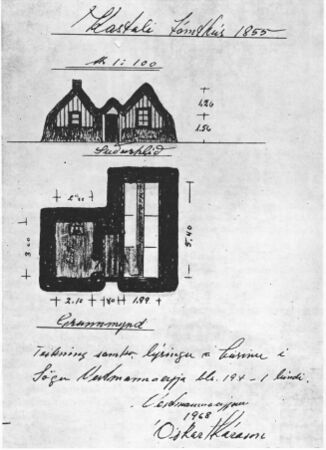 Kastali Tómthús 1855
Mk. 1:100
4.26
1.56
Suðurhlið
2.00
3.00
5.40
2.10
80
1.99
Grunnmynd
Teikning samkv. lýsingu á húsinu í
Sögu Vestmannaeyja bls. 194 - 1 bindi.
Vestmannaeyjum
1968
Óskar Kárason